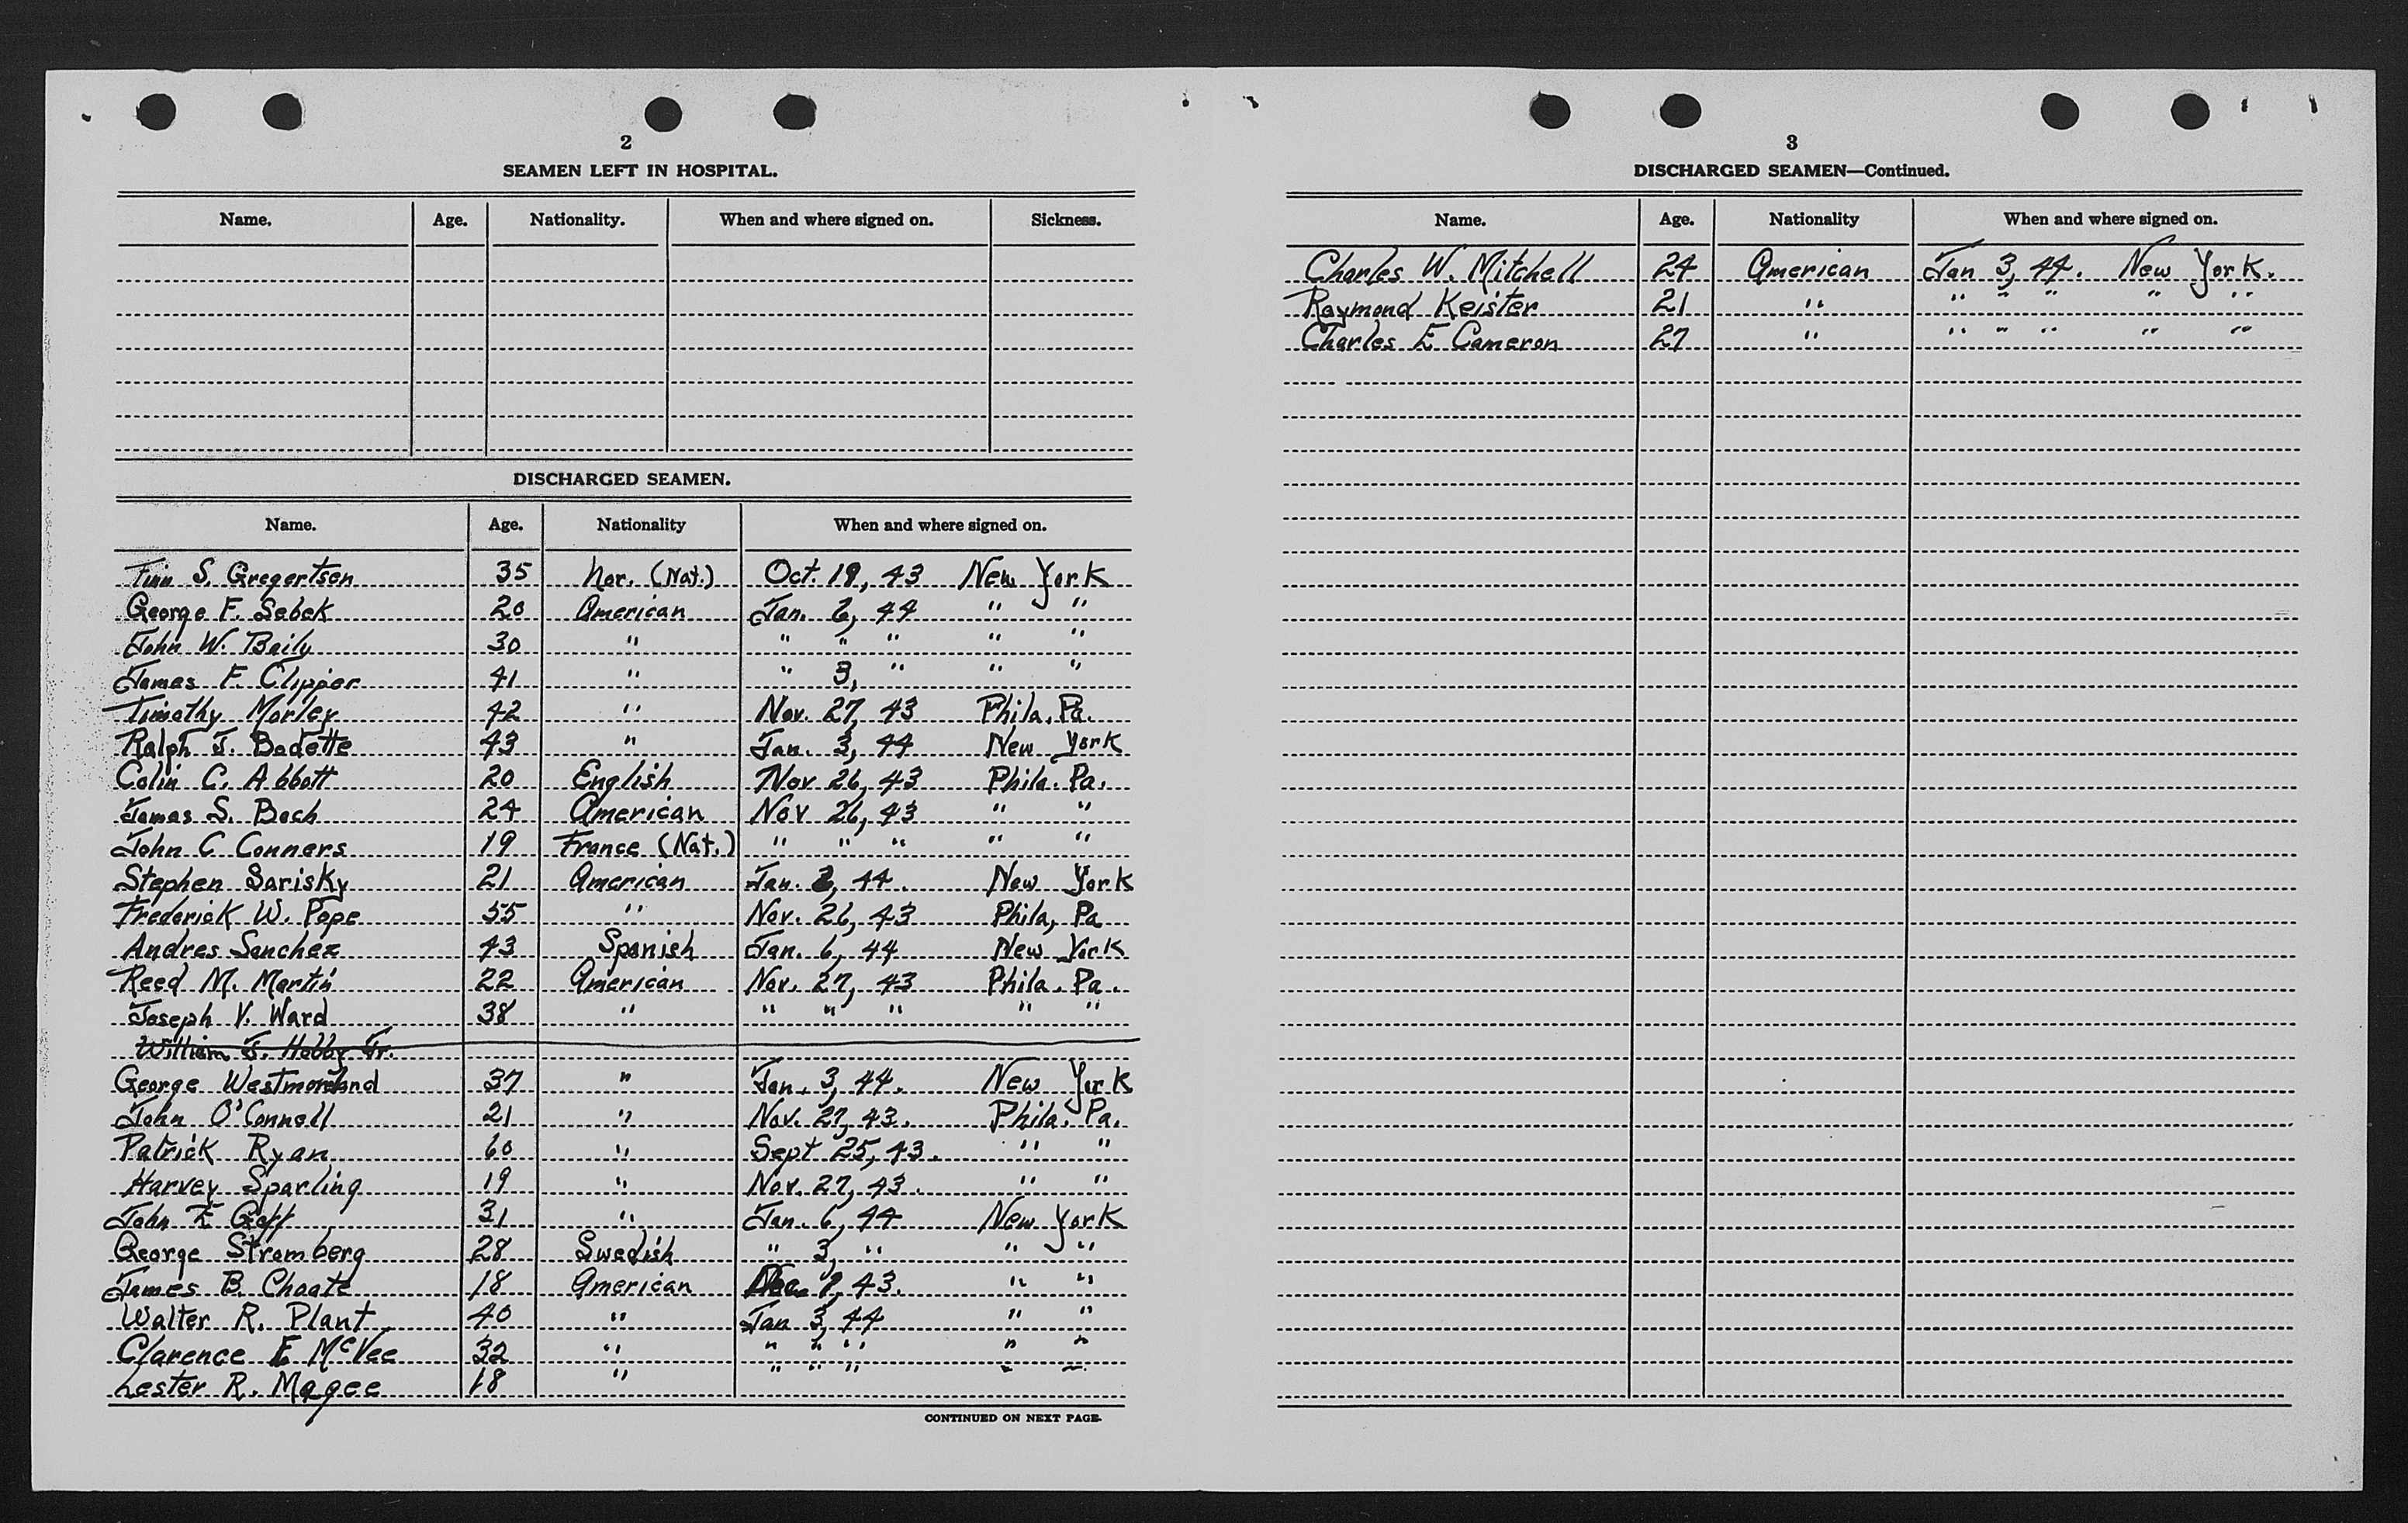 2
SEAMEN LEFT IN HOSPITAL.
Name. Age. Nationality. When and where signed on. Sickness.
DISCHARGED SEAMEN.
Name. Age. Nationality When and where signed on.
Finn S. Gregertsen 35 Nor. (Nat.) Oct. 19, 43 New York
George F. Sebek 20 American Jan. 6, 44 " "
John W. Baily 30 " " " " " "
James F. Clipper 41 " " 3, " " "
Timothy Morley 42 " Nov. 27, 43 Phila. Pa.
Ralph J. Badette 43 " Jan. 3, 44 New York
Colin C. Abbott 20 English Nov 26, 43 Phila. Pa.
James S. Boch 24 American Nov 26, 43 " "
John C Conners 19 France (Nat.) " " " " "
Stephen Sarisky 21 American Jan. 3, 44. New York
Frederick W. Pope 55 " Nov. 26, 43 Phila, Pa
Andres Sanchez 43 Spanish Jan. 6, 44 New York
Reed M. Martin 22 American Nov. 27, 43 Phila. Pa.
Joseph V. Ward 38 " " " " " "
William J. Jr.
George Westmoreland 37 " Jan. 3, 44. New York
John O'Connell 21 " Nov. 27, 43. Phila. Pa.
Patrick Ryan 60 " Sept 25, 43. " "
Harvey Sparling 19 " Nov. 27, 43. " "
John E Goff 31 " Jan. 6, 44 New York
George Stromberg 28 Swedish " 3, " " "
James B. Choate 18 American Dec 43. " "
Walter R. Plant 40 " Jan 3, 44 " "
Clarence E McVee 32 " " " " " "
Lester R. Magee 18 " " " " " "
CONTINUED ON NEXT PAGE.
3
DISCHARGED SEAMEN—Continued.
Name. Age. Nationality When and where signed on.
Charles W. Mitchell 24 American Jan 3, 44. New York.
Raymond Keister 21 " " " " " "
Charles E Cameron 27 " " " " " "